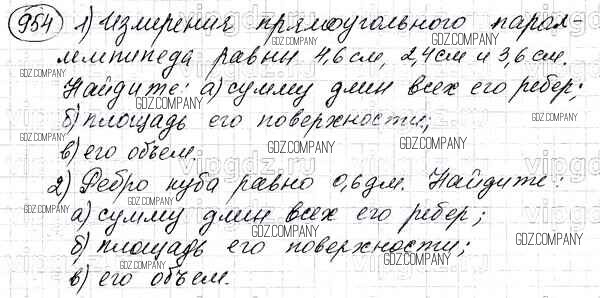 954 1) Измерения прямоугольного парал-
лелепипеда равны 4,6см, 2,4см и 3,6см.
Найдите: а) сумму длин всех его ребер;
б) площадь его поверхности;
в) его объем.
2) Ребро куба равно 0,6дм. Найдите:
а) сумму длин всех его ребер;
б) площадь его поверхности;
в) его объем.